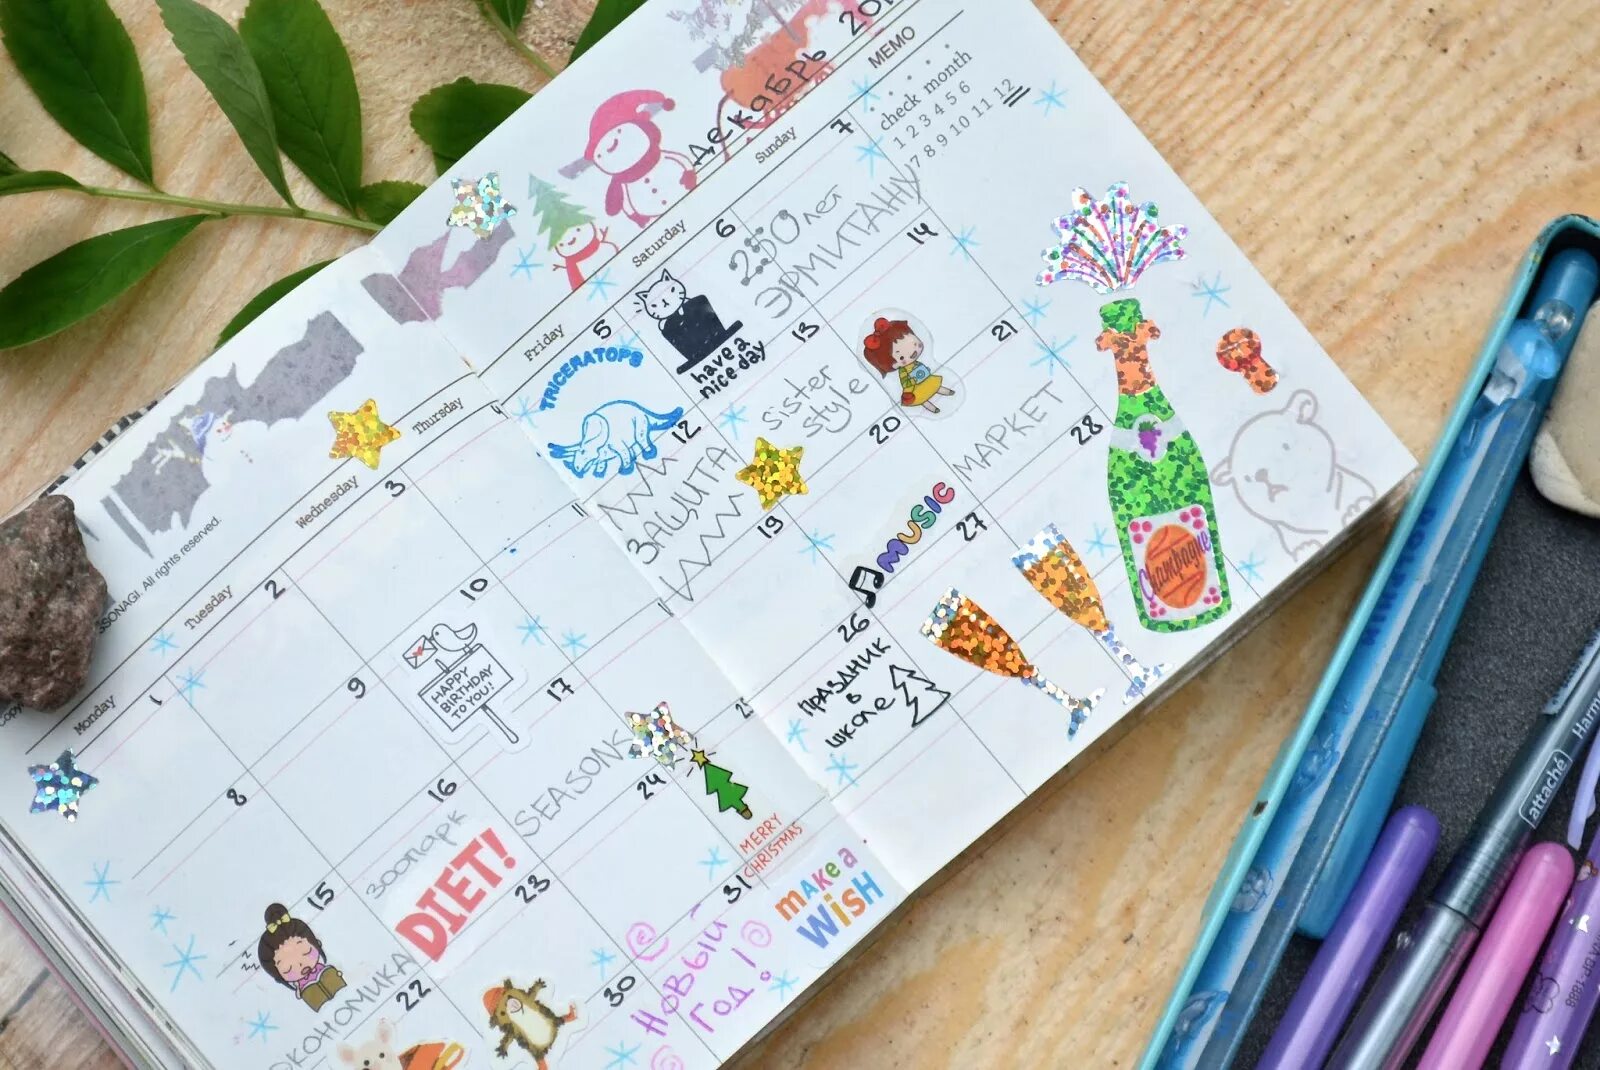 декабрь 201
MEMO
check month
1 2 3 4 5 6
7 8 9 10 11 12
SSONAGI. All rights reserved.
Monday
Tuesday
Wednesday
Thursday
Friday
Saturday
Sunday
1
2
3
4
5
TRICERATOPS
6
have a
nice day
7
250 лет
ЭРМИТАЖУ
8
9
10
HAPPY
BIRTHDAY
TO YOU!
11
12
ЗАЩИТА
13
sister
style
14
15
zzz
16
зоопарк
DIET!
17
SEASONS
19
20
MUSIC
21
МАРКЕТ
22
23
24
25
MERRY
CHRISTMAS
26
ПРАЗДНИК
в
школе
27
28
Champagne
30
31
НОВЫЙ
ГОД!
maKe a
WiSH
attaché